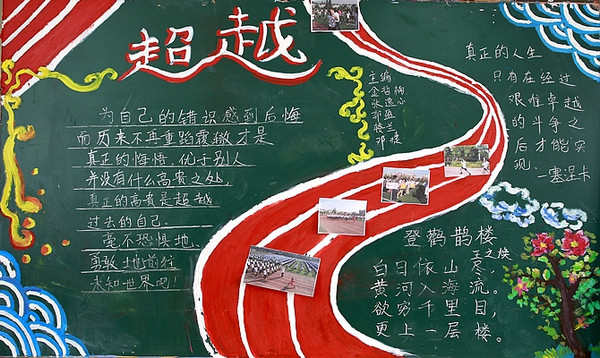 超越
为自己的错误感到后悔
而历来不再重蹈覆辙才是
真正的悔悟.优于别人
并没有什么高贵之处,
真正的高贵是超越
过去的自己.
毫不恐惧地、
勇敢地前往
未知世界吧!
主编
真正的人生
只有在经过
艰难卓越
的斗争之
后才能实
现.
—塞涅卡
登鹳鹊楼
王之涣
白日依山尽,
黄河入海流。
欲穷千里目,
更上一层楼。